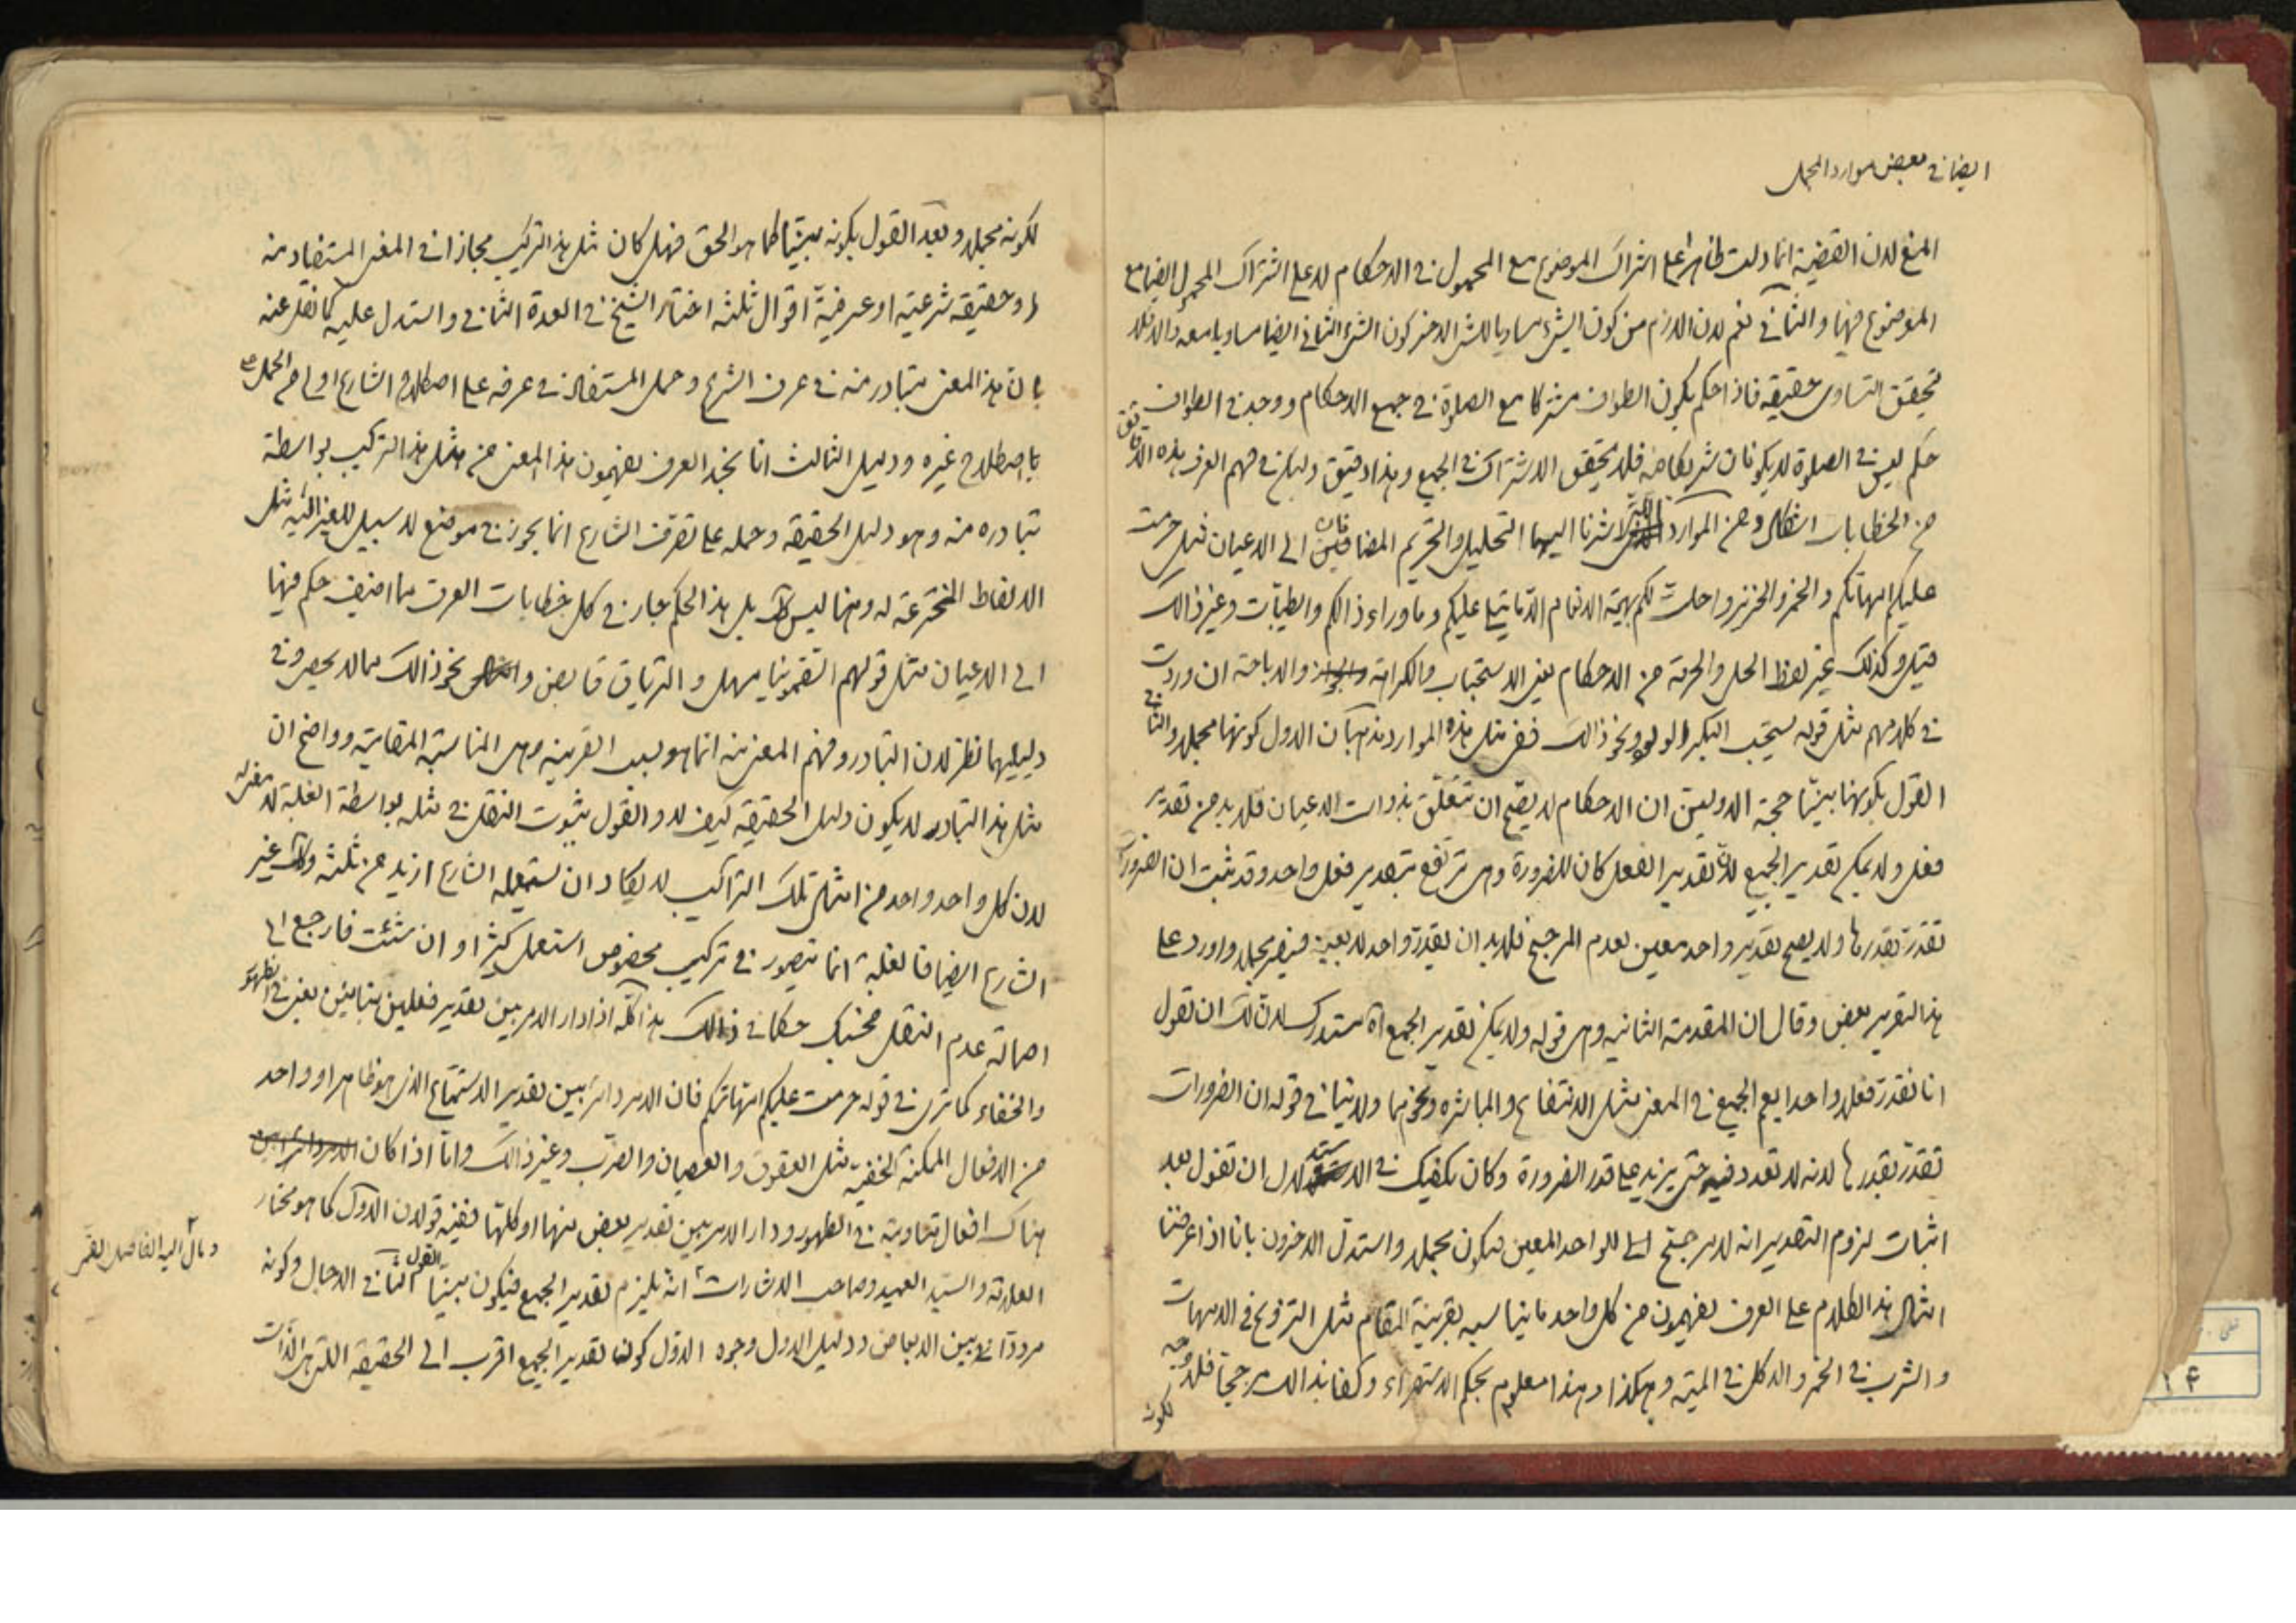 ايضا في بعض موارد المجمل
المنع لان القضية انما دلت ظاهرا على اشتراك الموضوع مع المحمول في الاحكام لا على اشتراك المحمول ايضا مع
الموضوع فيها والثاني نعم لان اللازم من كون الشيء مساويا للشيء الاخر كون الشيء الثاني ايضا مساويا معه والا فلا
تحقق التساوى حقيقة فاذا حكم بكون الطواف مشتركا مع الصلوة في جميع الاحكام ووجد في الطواف
حكم ليس في الصلوة لا يكونان شريكا فلا تحقق الاشتراك في الجميع وهذا دقيق وليكن في فهم العرف هذه الدقائق
من الخطابات اشكال ومن الموارد التي اشرنا اليها التحليل والتحريم المضافان الى الاعيان فمثل حرمت
عليكم امهاتكم والخمر والخنزير واحلت لكم بهيمة الانعام الا ما يتلى عليكم وما وراء ذالكم والطيبات وغير ذالك
وكذلك غير لفظ الحل والحرمة من الاحكام يعنى الاستحباب والكراهة والاباحة ان وردت
في كلامهم مثل قوله يستحب البكر الولود ونحو ذالك ففى مثل هذه الموارد مذهبان الاول كونها مجملا والثاني
القول بكونها مبينا حجة الاولين ان الاحكام لا يصح ان تتعلق بذوات الاعيان فلا بد من تقدير
فعل ولا يمكن تقدير الجميع لان تقدير الفعل كان للضرورة وهى ترتفع بتقدير فعل واحد وقد ثبت ان الضرورات
تقدر بقدرها ولا يصح تقدير واحد معين لعدم المرجح فلا بد ان يقدر واحد لا بعينه فيصير مجملا واورد على
هذا التقرير بعض وقال ان المقدمة الثانية وهى قوله ولا يمكن تقدير الجميع اه مستدرك لان لك ان تقول
انا نقدر فعلا واحدا يعم الجميع في المعنى مثل الانتفاع والمباشرة ونحوهما ولا ينافى قوله ان الضرورات
تقدر بقدرها لانه لا تعدد فيه حتى يزيد على قدر الضرورة وكان يكفيك في الاستدلال ان تقول بعد
اثبات لزوم التقدير انه لا مرجح للواحد المعين فيكون مجملا واستدل الاخرون بانا اذا عرضنا
امثال هذا الكلام على العرف يفهمون من كل واحد ما يناسبه بقرينة المقام مثل التزويج في الامهات
والشرب في الخمر والاكل في الميتة وهكذا وهذا معلوم بحكم الاستقراء وكفى بذالك مرجحا فلا وجه
لكونه
لكونه مجملا وبعد القول بكونه مبينا كما هو الحق فهل كان مثل هذا التركيب مجازا في المعنى المستفاد منه
او حقيقة شرعية او عرفية اقوال ثلثة اختار الشيخ في العدة الثاني واستدل عليه كما نقل عنه
بان هذا المعنى يتبادر منه في عرف الشرع وحمل المستفاد في عرفه على اصطلاح الشارع اولى من الحمل على
باصطلاح غيره ودليل الثالث انا نجد العرف يفهمون هذا المعنى من مثل هذا التركيب بواسطة
تبادره منه وهو دليل الحقيقة وحمله على تصرف الشارع انما يجوز في موضع لا سبيل للغير اليه مثل
الالفاظ المخترعة له وهنا ليس كك بل هذا الحكم جار في كل خطابات العرف مما اضيف حكم فيها
الى الاعيان مثل قولهم السقمونيا مسهل والترياق قابض ونحو ذالك مما لا يحصر وفى
دليليهما نظر لان التبادر وفهم المعنى منه انما هو بسبب القرينة وهى المناسبة المقامية وواضح ان
مثل هذا التبادر لا يكون دليل الحقيقة كيف لا والقول بثبوت النقل في مثله بواسطة الغلبة لا معنى له
لان كل واحد واحد من امثال تلك التراكيب لا يكاد ان يستعمله الشارع ازيد من ثلثة وكك غير
الشارع ايضا فالغلبة انما تتصور في تركيب مخصوص استعمل كثيرا وان شئت فارجع الى
اصالة عدم النقل فحسبك حكما في ذالك هذا كله اذا دار الامر بين تقدير فعلين متباينين يعنى في الظهور
والخفاء كما ترى في قوله حرمت عليكم امهاتكم فان الامر دائر بين تقدير الاستمتاع الذي هو ظاهر او واحد
من الافعال الممكنة الخفية مثل العقوق والعصيان والضرب وغير ذالك واما اذا كان
هناك افعال متساوية في الظهور ودار الامر بين تقدير بعض منها او كلها ففيه قولان الاول كما هو مختار
العلامة والسيد العميد وصاحب الاشارات انه يلزم تقدير الجميع فيكون مبينا القول الثاني الاجمال وكونه
ومال اليه الفاضل القمى
مرددا بين الابعاض ودليل الاول وجوه الاول كون تقدير الجميع اقرب الى الحقيقة التي هى الذات